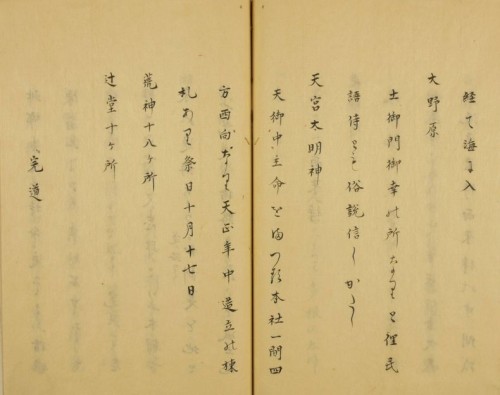 経て海に入
大野原
土御門御幸の所なりと俚民
語侍とも俗説信しかたし
天宮大明神
天御中主命をまつる本社一間四
方西向なり天正年中造立の棟
札あり祭日十月十七日
荒神十八ヶ所
辻堂十ヶ所
完道